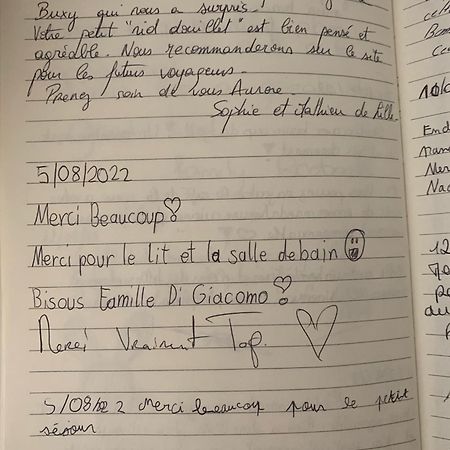 Buxy qui nous a surpris !
Votre petit "nid douillet" est bien pensé et
agréable. Nous recommanderons sur le site
pour les futurs voyageurs.
Prenez soin de vous Aurore.
Sophie et Mathieu de Lille
5/08/2022
Merci Beaucoup !
Merci pour le lit et la salle de bain
Bisous Famille Di Giacomo !
Merci Vraiment Top.
5/08/22 2 Merci beaucoup pour le petit
séjour
10/0
12